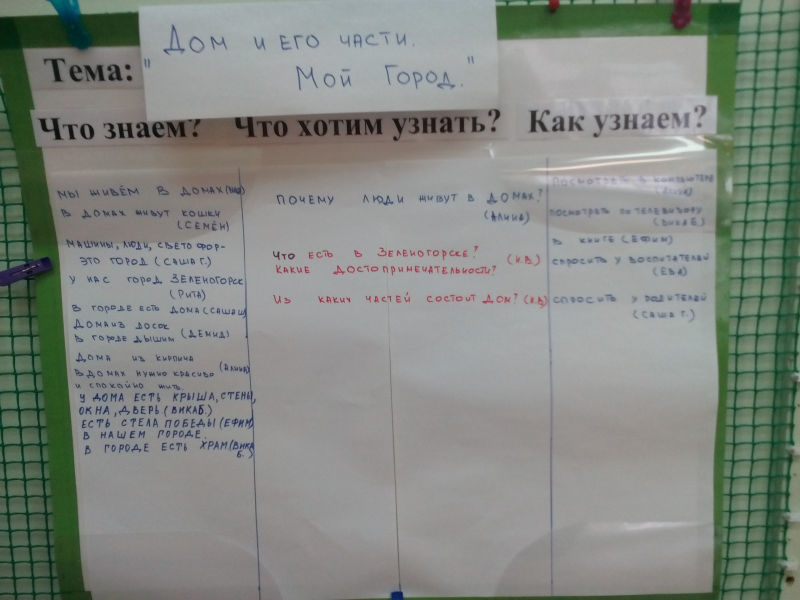 Тема:
"Дом и его части.
Мой Город."
Что знаем?
Что хотим узнать?
Как узнаем?
Мы живём в домах
В домах живут кошки
(Семён)
Машины, люди, светофор-
это город (Саша Г.)
У нас город Зеленогорск
(Рита)
В городе есть дома (Саша
Дома из досок
В городе дышим (Демид)
Дома из кирпича
В домах нужно красиво (Алина)
и спокойно жить.
У дома есть крыша, стены,
окна, дверь. (Вика Б.)
Есть Стела Победы (Ефим)
в нашем городе.
В городе есть храм (Вика
Б.)
Почему люди живут в домах?
(Алина)
Что есть в Зеленогорске?
Какие достопримечательности? (И.В.)
Из каких частей состоит дом? (И.В.)
Посмотреть в компьютере
посмотреть по телевизору
(Вика Б)
в книге (Ефим)
спросить у воспитателей
(Ева)
спросить у родителей
(Саша Г.)